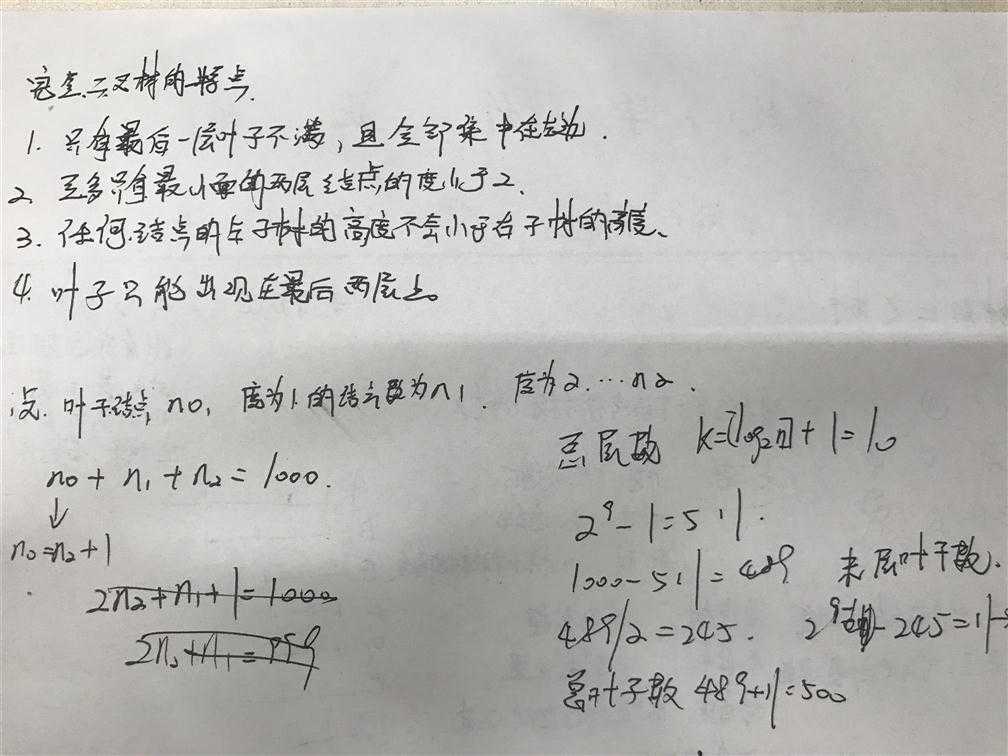 完全二叉树的特点.
1. 只有最后一层叶子不满,且全部集中在左边.
2. 至多只有最下面的两层结点的度小于2.
3. 任何结点的左子树的高度不会小于右子树的高度、
4. 叶子只能出现在最后两层上。
设. 叶子结点 n0, 度为1的结点数为n1. 度为2. … n2.
n0 + n1 + n2 = 1000.
↓
n0=n2+1
2n2+n1+1=1000
2n2+n1=999
总层数 k=[log2n]+1=10
2^9-1=511.
1000-511=489 末层叶子数.
489/2=245. 2^9-1 - 245=11
总叶子数 489+11=500